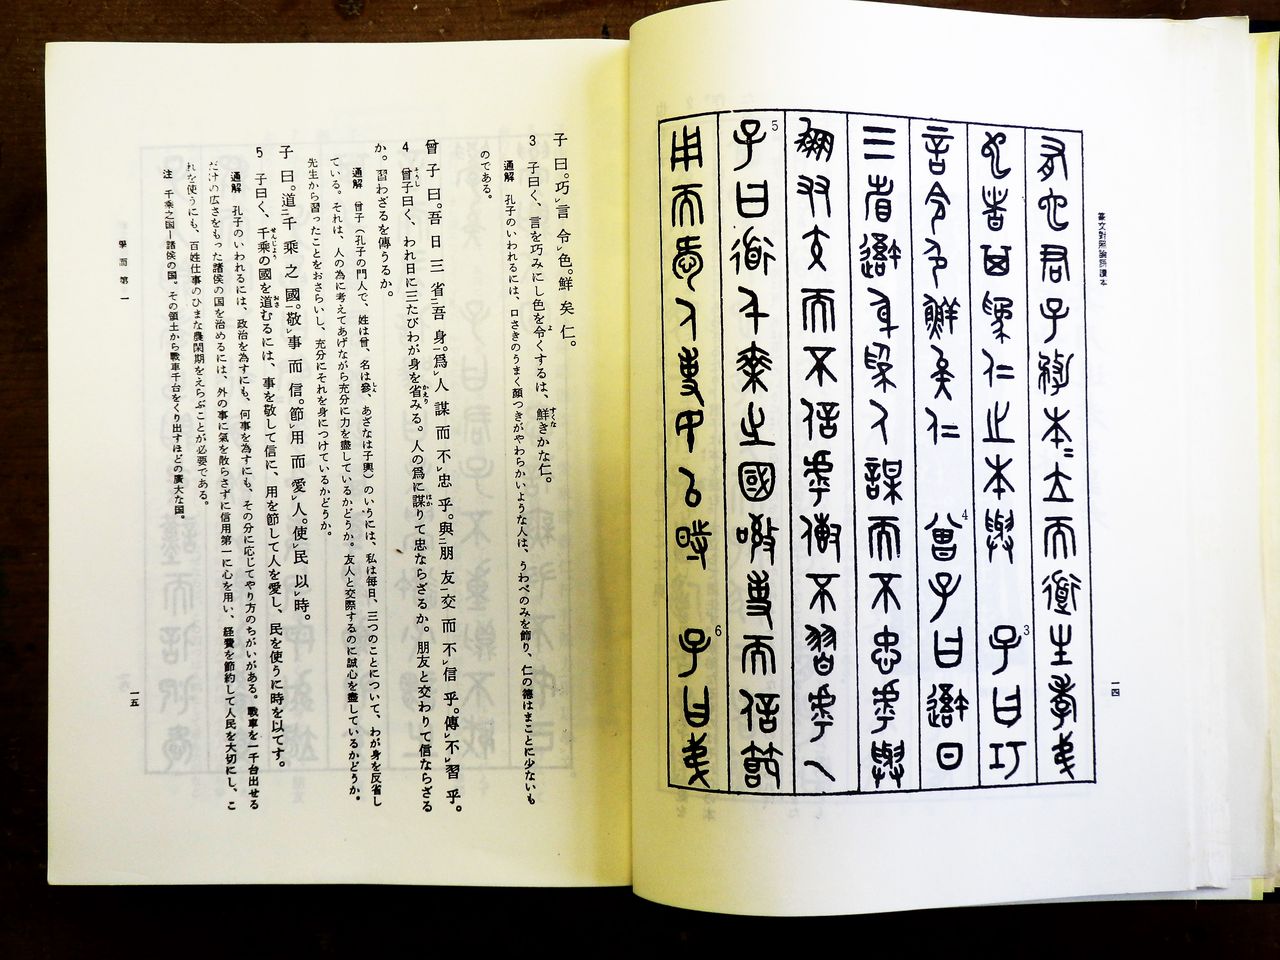 篆文對照論語讀本
一四
有也君子務本〻立而道生孝弟
也者其爲仁之本與 3 子曰巧
言令色鮮矣仁 4 曾子曰吾日
三省吾身爲人謀而不忠乎與
朋友交而不信乎傳不習乎
5 子曰道千乘之國敬事而信節
用而愛人使民以時 6 子曰弟
子曰。巧レ言令レ色。鮮矣仁。
3 子曰く、言を巧みにし色を令くするは、鮮きかな仁。
通解 孔子のいわれるには、口さきのうまく顔つきがやわらかいような人は、うわべのみを飾り、仁の德はまことに少ないも
のである。
曾子曰。吾日三二省吾身一。爲レ人謀而不レ忠乎。與二朋友一交而不レ信乎。傳レ不レ習乎。
4 曾子曰く、われ日に三たびわが身を省みる。人の爲に謀りて忠ならざるか。朋友と交わりて信ならざる
か。習わざるを傳うるか。
通解 曾子（孔子の門人で、姓は曾、名は參、あざなは子輿）のいうには、私は每日、三つのことについて、わが身を反省し
ている。それは、人の為に考えてあげながら充分に力を盡しているかどうか。友人と交際するのに誠心を盡しているかどうか。
先生から習ったことをおさらいし、充分にそれを身につけているかどうか。
子曰。道二千乘之國一。敬レ事而信。節レ用而愛レ人。使レ民以レ時。
5 子曰く、千乘の國を道むるには、事を敬して信に、用を節して人を愛し、民を使うに時を以てす。
通解 孔子のいわれるには、政治を為すにも、何事を為すにも、その分に応じてやり方のちがいがある。戰車を一千台出せる
だけの広さをもった諸侯の国を治めるには、外の事に氣を散らさずに信用第一に心を用い、経費を節約して人民を大切にし、こ
れを使うにも、百姓仕事のひまな農閑期をえらぶことが必要である。
注 千乘之国—諸侯の国。その領土から戰車千台をくり出すほどの廣大な国。
學而第一
一五